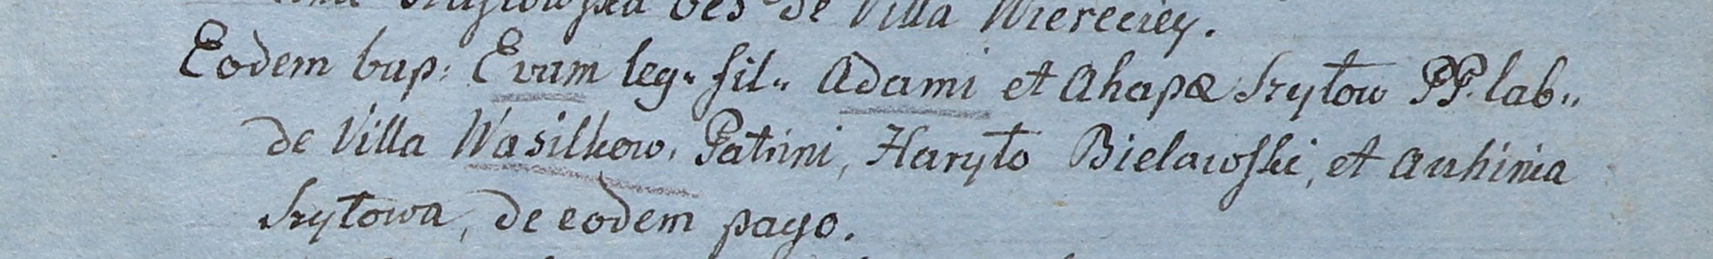 de Villa Wiereciey.
Eodem bap: Evam leg„ fil„ Adami et Ahapæ Szyłow PP. lab„
de Villa Wasilkow. Patrini, Haryło Bielawski, et Auhinia
Szyłowa, de eodem pago.